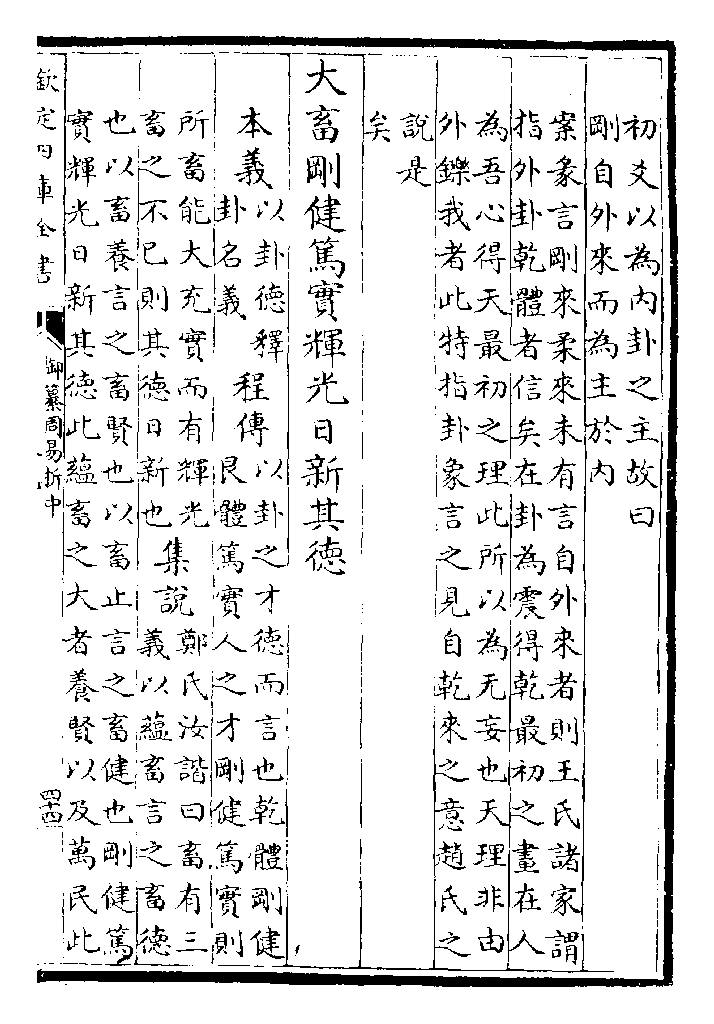 初爻以為内卦之主故曰
剛自外來而為主於内
案彖言剛來柔來未有言自外來者則王氏諸家謂
指外卦乾體者信矣在卦為震得乾最初之畫在人
為吾心得天最初之理此所以為无妄也天理非由
外鑠我者此特指卦象言之見自乾來之意趙氏之
說是
矣
大畜剛健篤實輝光日新其德
本義以卦德釋
卦名義
程傳以卦之才德而言也乾體剛健
艮體篤實人之才剛健篤實則
所畜能大充實而有輝光
畜之不已則其德日新也
集說鄭氏汝諧曰畜有三
義以蘊畜言之畜德
也以畜養言之畜賢也以畜止言之畜健也剛健篤
實輝光日新其德此蘊畜之大者養賢以及萬民此
欽定四庫全書
御纂周易折中
四十四